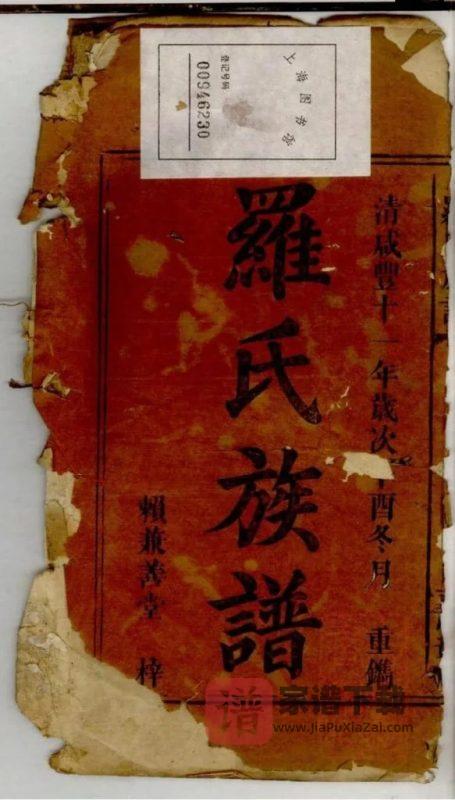 上海图书馆
登记号码
00946230
清咸豐十一年歲次辛酉冬月 重鐫
羅氏族譜
賴兼善堂 梓
谱
家谱下载
www.JiaPuXiaZai.com